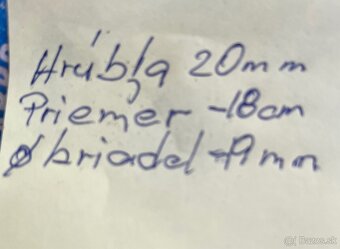 Hrúbka 20mm
Priemer -18cm
ø briadel -19mm
© Bazos.sk